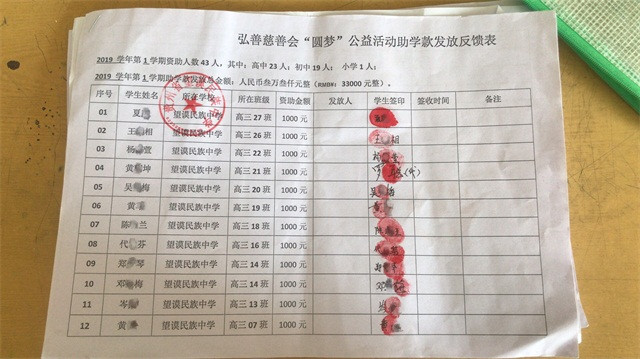 弘善慈善会“圆梦”公益活动助学款发放反馈表
2019 学年第1学期资助人数 43 人，其中：高中 23 人；初中 19 人； 小学 1 人；
2019 学年第1学期助学款发放总金额：人民币叁万叁仟元整（RMB¥：33000 元整）。
序号 学生姓名 所在学校 所在班级 资助金额 发放人 学生签印 签收时间 备注
01 夏 望谟民族中学 高三 27 班 1000 元
02 王 相 望谟民族中学 高三 26 班 1000 元 王 相
03 杨 萱 望谟民族中学 高三 22 班 1000 元
04 黄 坤 望谟民族中学 高三 21 班 1000 元
05 吴 梅 望谟民族中学 高三 20 班 1000 元 吴 梅
06 黄 望谟民族中学 高三 19 班 1000 元
07 陈 兰 望谟民族中学 高三 18 班 1000 元
08 代 芬 望谟民族中学 高三 16 班 1000 元
09 郑 琴 望谟民族中学 高三 14 班 1000 元
10 邓 梅 望谟民族中学 高三 14 班 1000 元 邓
11 岑 望谟民族中学 高三 13 班 1000 元
12 黄 望谟民族中学 高三 07 班 1000 元